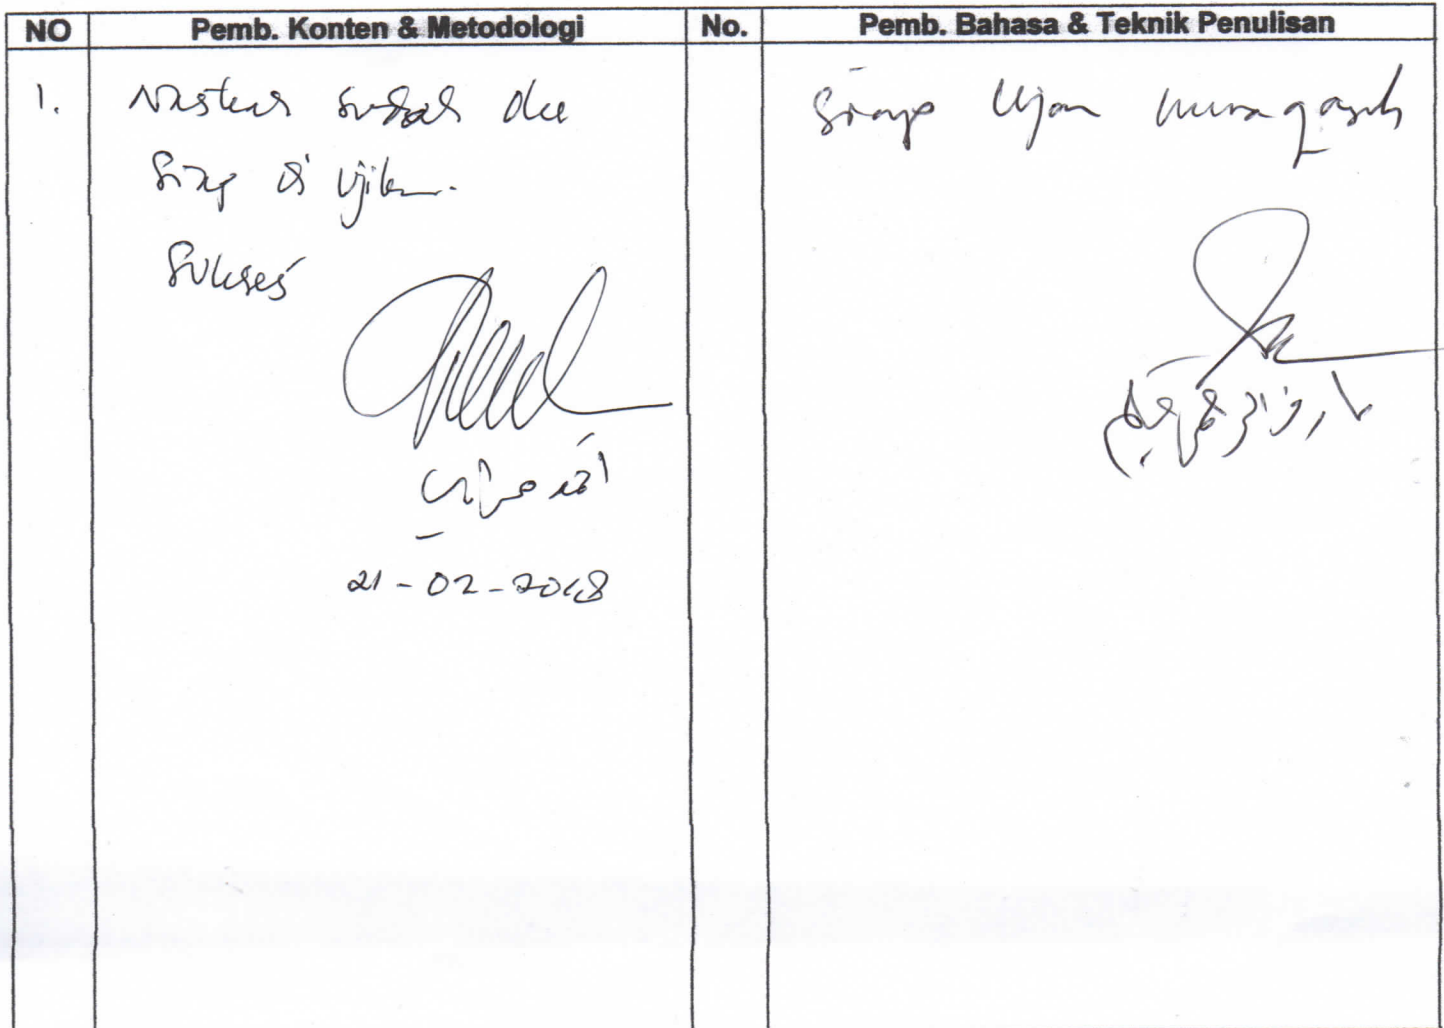 NO Pemb. Konten & Metodologi No. Pemb. Bahasa & Teknik Penulisan
1. Naskah sudah
siap di ujikan.
Sukses
21-02-2018
Siap Ujian munaqasah